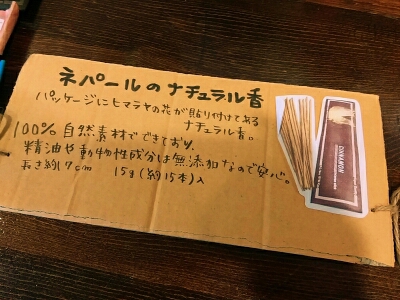 ネパールのナチュラル香
パッケージにヒマラヤの花が貼り付けてある
ナチュラル香。
100%自然素材でできており、
精油や動物性成分は無添加なので安心。
長さ約17cm 15g(約15本)入
CINNAMON